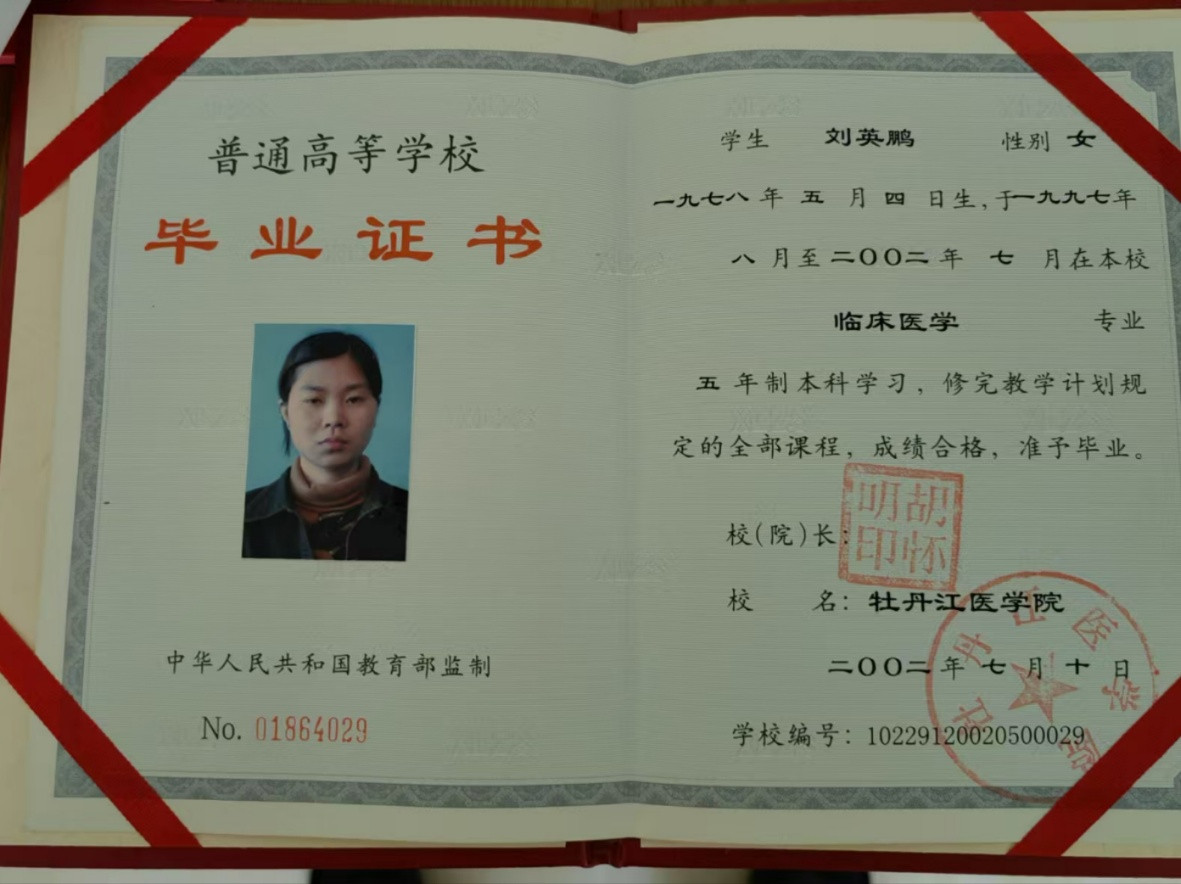 普通高等学校
毕业证书
中华人民共和国教育部监制
No. 01864029
学生 刘英鹏 性别 女
一九七八年 五 月 四 日生，于一九九七年
八 月至二OO二年 七 月在本校
临床医学 专业
五 年制本科学习，修完教学计划规
定的全部课程，成绩合格，准予毕业。
校(院)长：
胡怀明印
校 名：牡丹江医学院
二OO二年 七 月 十 日
学校编号：10229120020500029
牡丹江医学院